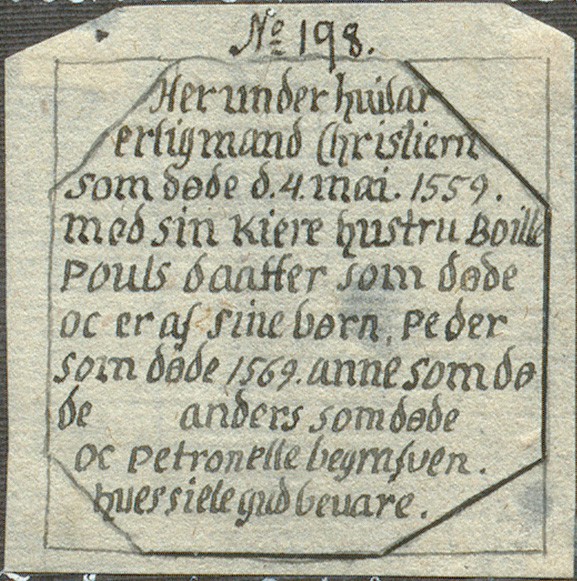 No 198.
Her under huilar
erlig mand Christiern
som døde d. 4. mai. 1559.
med sin Kiere hustru Boille
Pouls daatter som døde
oc er af sine børn, Peder
som døde 1569. anne som dø
de anders som døde
oc Petronelle begrafven.
hues siele gud beuare.